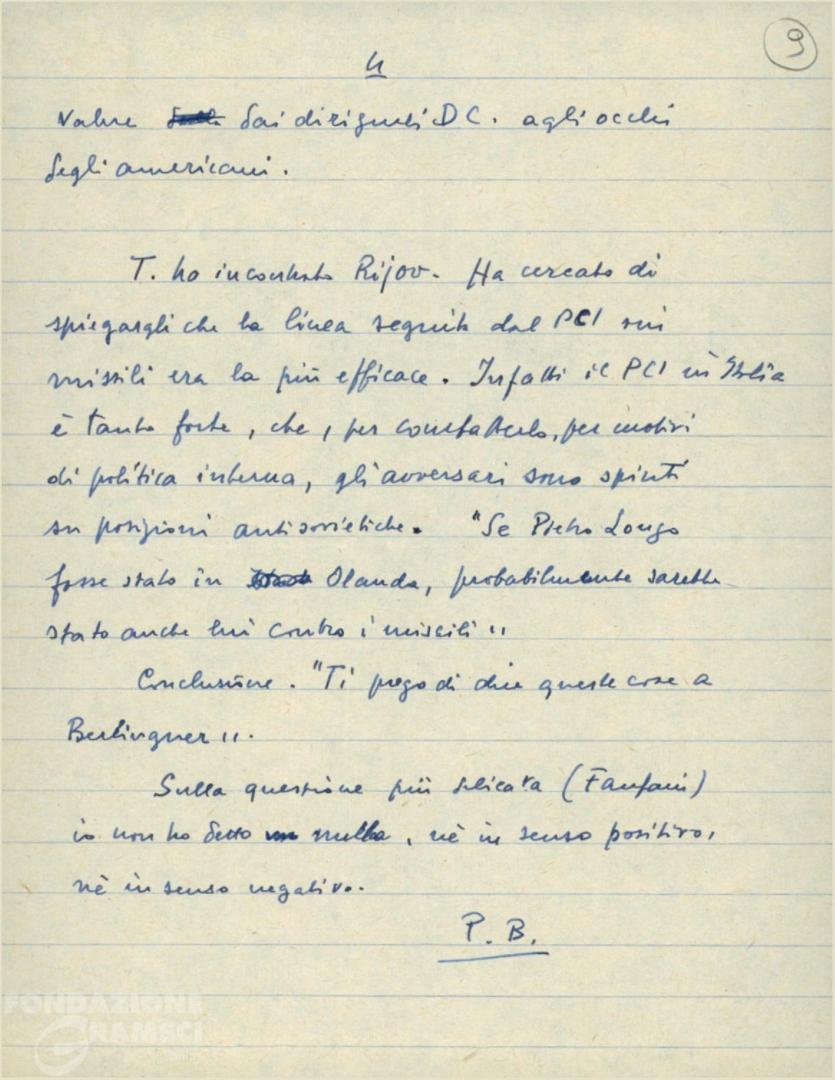 9
4
valore dai dirigenti DC. agli occhi
degli americani.
T. ha incontrato Rijov. Ha cercato di
spiegargli che la linea seguita dal PCI sui
missili era la più efficace. Infatti il PCI in Italia
è tanto forte, che, per combatterlo, per motivi
di politica interna, gli avversari sono spinti
su posizioni antisovietiche. "Se Pietro Longo
fosse stato in Olanda, probabilmente sarebbe
stato anche lui contro i missili"
Conclusione. "Ti prego di dire queste cose a
Berlinguer".
Sulla questione più delicata (Fanfani)
io non ho detto nulla, nè in senso positivo,
nè in senso negativo.
P. B.
FONDAZIONE
GRAMSCI